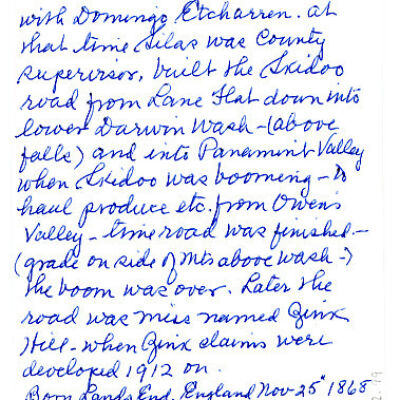 with Domingo Etcharren. at
that time Silas was County
supervisor, built the Skidoo
road from Lane Flat down into
lower Darwin Wash - (above
falls) and into Panamint Valley
when Skidoo was booming - to
haul produce etc. from Owens
Valley - time road was finished -
(grade on side of Mts above wash -)
the boom was over. Later the
road was miss named Zink
Hill - when Zink claims were
developed 1912 on.
Born Lands End, England Nov-25" 1868